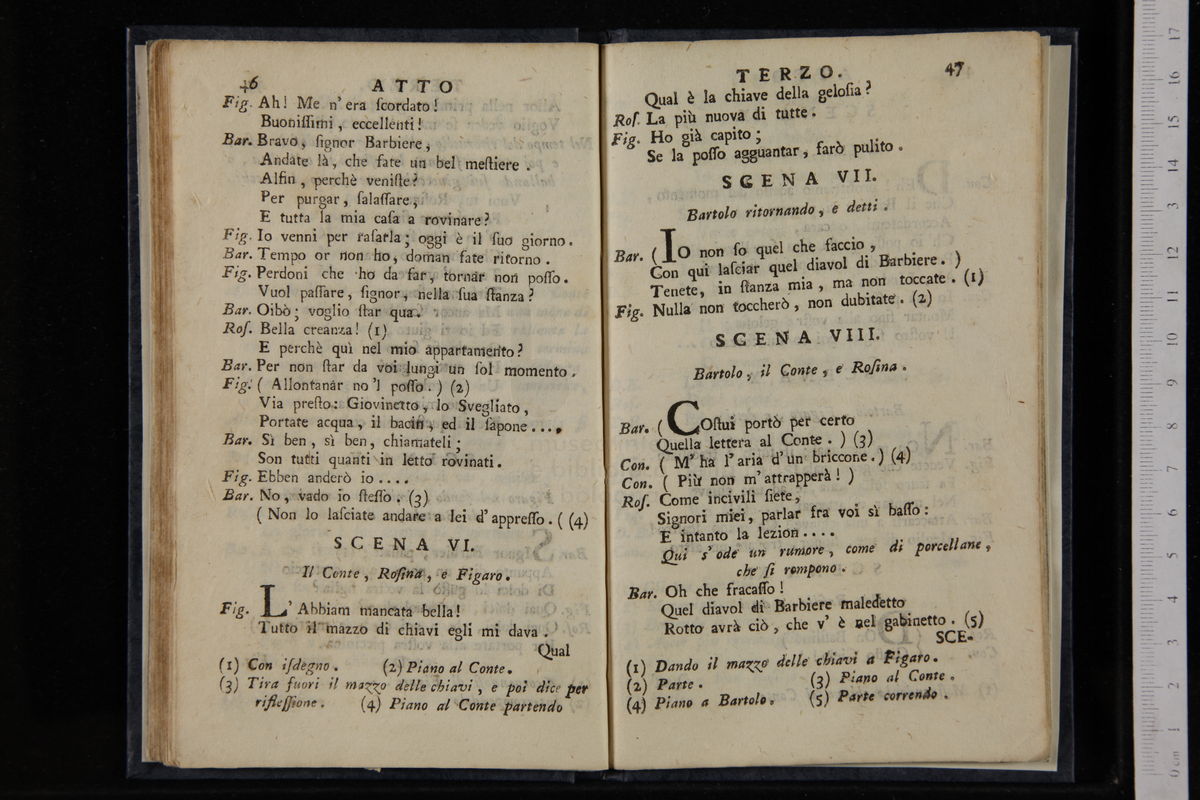 46 ATTO
Fig. Ah! Me n'era ſcordato!
Buoniſſimi, eccellenti!
Bar. Bravo, ſignor Barbiere,
Andate là, che fate un bel meſtiere.
Alfin, perchè veniſte?
Per purgar, ſalaſſare,
E tutta la mia caſa a rovinare?
Fig. Io venni per raſarla; oggi è il ſuo giorno.
Bar. Tempo or non ho, doman fate ritorno.
Fig. Perdoni che ho da far, tornar non poſſo.
Vuol paſſare, ſignor, nella ſua ſtanza?
Bar. Oibò; voglio ſtar qua.
Roſ. Bella creanza! (1)
E perchè quì nel mio appartamento?
Bar. Per non ſtar da voi lungi un ſol momento.
Fig. ( Allontanar no'l poſſo. ) (2)
Via preſto: Giovinetto, lo Svegliato,
Portate acqua, il bacin, ed il ſapone....
Bar. Sì ben, sì ben, chiamateli;
Son tutti quanti in letto rovinati.
Fig. Ebben anderò io....
Bar. No, vado io ſteſſo. (3)
( Non lo laſciate andare a lei d'appreſſo. ( (4)
SCENA VI.
Il Conte, Roſina, e Figaro.
Fig. L'Abbiam mancata bella!
Tutto il mazzo di chiavi egli mi dava.
Qual
(1) Con iſdegno. (2) Piano al Conte.
(3) Tira fuori il mazzo delle chiavi, e poi dice per
rifleſſione. (4) Piano al Conte partendo
TERZO. 47
Qual è la chiave della geloſia?
Roſ. La più nuova di tutte.
Fig. Ho già capito;
Se la poſſo agguantar, farò pulito.
SCENA VII.
Bartolo ritornando, e detti.
Bar. ( Io non ſo quel che faccio,
Con qui laſciar quel diavol di Barbiere. )
Tenete, in ſtanza mia, ma non toccate. (1)
Fig. Nulla non toccherò, non dubitate. (2)
SCENA VIII.
Bartolo, il Conte, e Roſina.
Bar. ( COſtui portò per certo
Quella lettera al Conte. ) (3)
Con. ( M'ha l'aria d'un briccone.) (4)
Con. ( Più non m'attrapperà! )
Roſ. Come incivili ſiete,
Signori miei, parlar fra voi sì baſſo:
E intanto la lezion....
Qui s'ode un rumore, come di porcellane,
che ſi rompono.
Bar. Oh che fracaſſo!
Quel diavol di Barbiere maledetto
Rotto avrà ciò, che v'è nel gabinetto. (5)
SCE-
(1) Dando il mazzo delle chiavi a Figaro.
(2) Parte. (3) Piano al Conte.
(4) Piano a Bartolo. (5) Parte correndo.